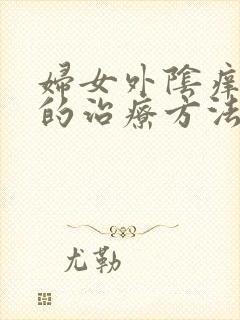 婦女外陰瘁
的治療方法
尤勒